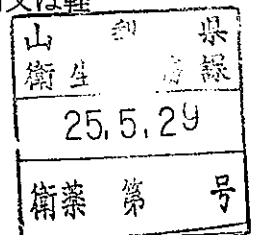 又は軽
山 県
衛生 課
25.5.29
衛薬 第 号